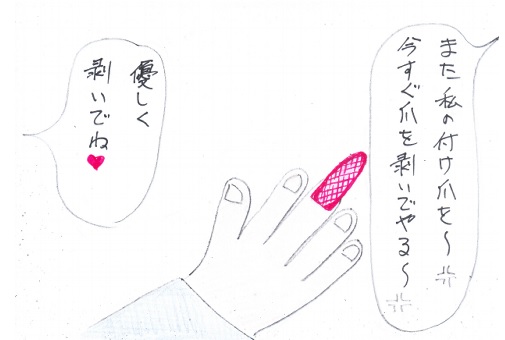 また私の付け爪を〜💢
今すぐ爪を剥いでやる〜💢
優しく
剥いでね♥